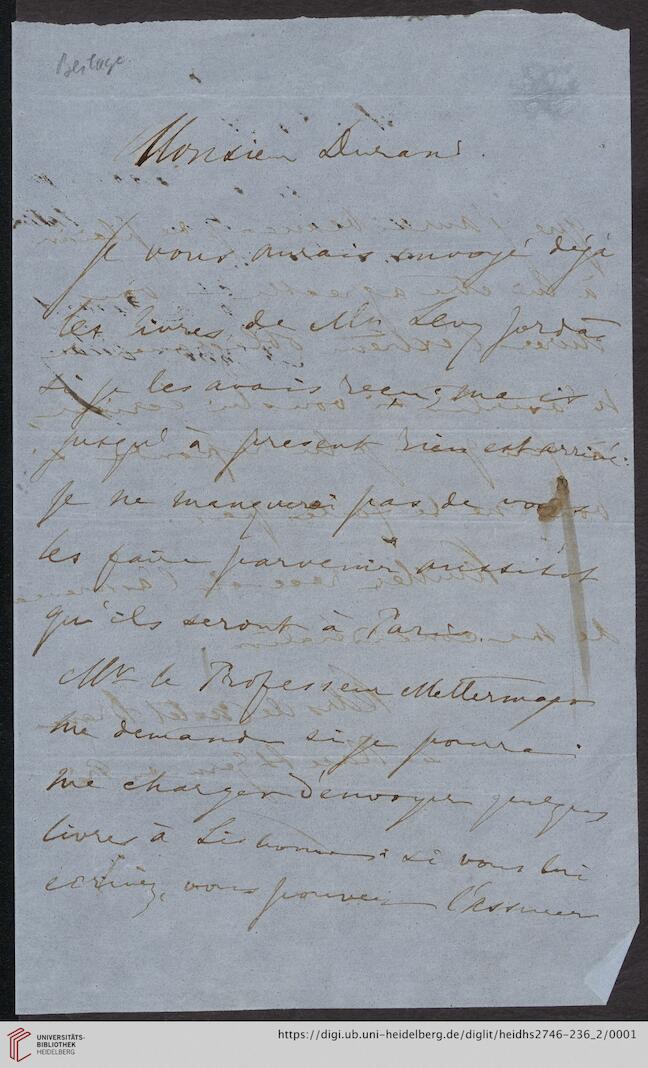 Beilage
Monsieur Durand.
Je vous aurais envoyé déjà
les livres de Mr Levy Jordão
si je les avais reçu: mais
jusqu'à présent rien est arrivé.
Je ne manquerai pas de vous
les faire parvenir aussitôt
qu'ils seront à Paris.
Mr le Professeur Mettermayer
me demande si je pourrai
me charger d'envoyer quelques
livres à Lisbonne: si vous lui
écrivez, vous pouvez l'assurer
UNIVERSITÄTS-
BIBLIOTHEK
HEIDELBERG
https://digi.ub.uni-heidelberg.de/diglit/heidhs2746-236_2/0001